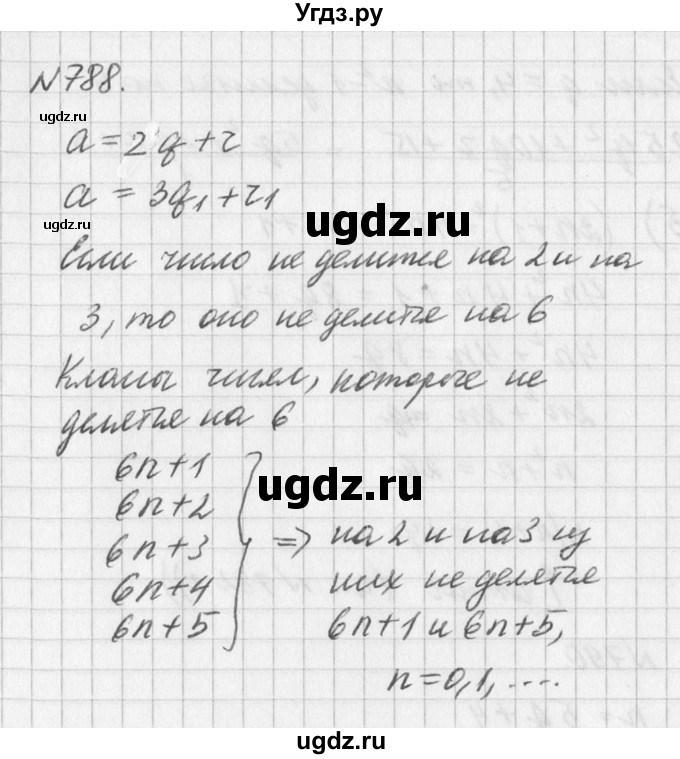 Угдз.ру
N788.
ugdz.ru
a = 2q + r
a = 3q₁ + r₁
ugdz.ru
ugdz.ru
Если число не делится на 2 и на
3, то оно не делится на 6
Классы чисел, которые не
делятся на 6
6n+1
6n+2
ugdz.ru
6n+3
6n+4
6n+5
⇒ на 2 и на 3 из
них не делятся
6n+1 и 6n+5,
n = 0,1, ....
ugdz.ru
ugdz.ru